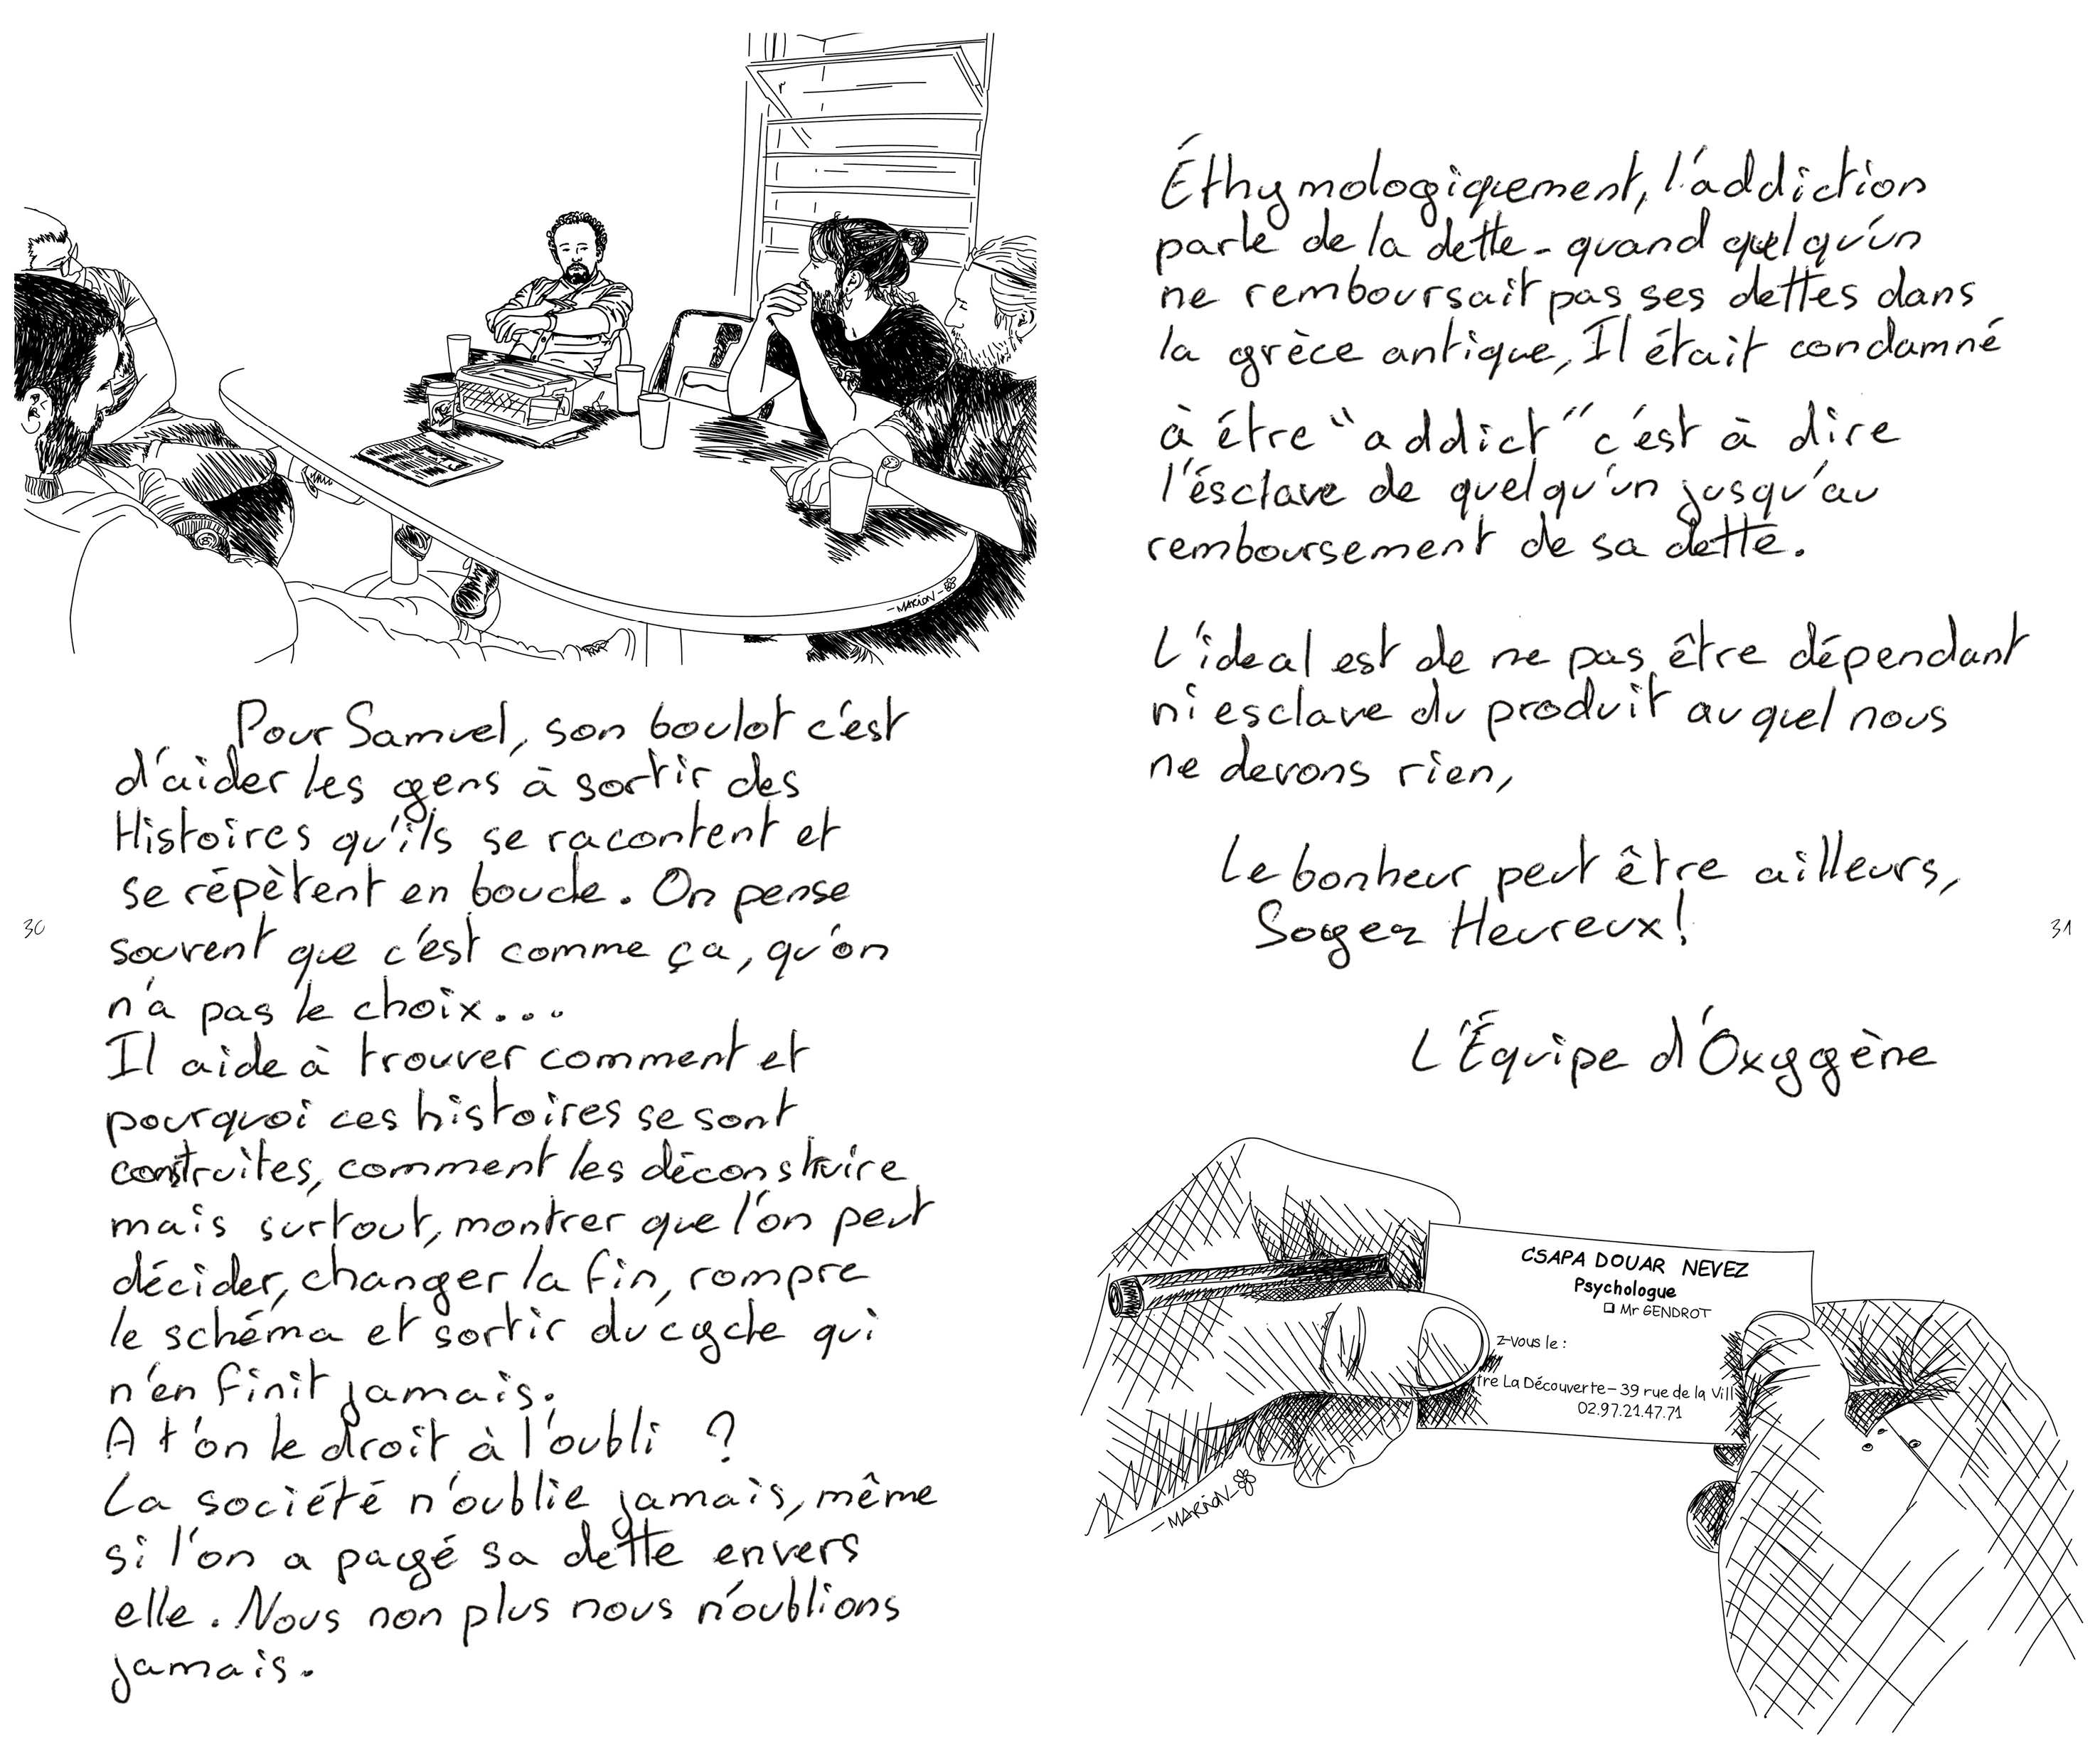 -MARION-
Pour Samuel, son boulot c'est
d'aider les gens à sortir des
Histoires qu'ils se racontent et
se répètent en boucle. On pense
souvent que c'est comme ça, qu'on
n'a pas le choix...
Il aide à trouver comment et
pourquoi ces histoires se sont
construites, comment les déconstruire
mais surtout, montrer que l'on peut
décider, changer la fin, rompre
le schéma et sortir du cycle qui
n'en finit jamais.
A t'on le droit à l'oubli ?
La société n'oublie jamais, même
si l'on a payé sa dette envers
elle. Nous non plus nous n'oublions
jamais.
30
Éthymologiquement, l'addiction
parle de la dette - quand quelqu'un
ne remboursait pas ses dettes dans
la grèce antique, Il était condamné
à étre "addict" c'est à dire
l'ésclave de quelqu'un jusqu'au
remboursement de sa dette.
L'ideal est de ne pas être dépendant
ni esclave du produit auquel nous
ne devons rien,
Le bonheur peut être ailleurs,
Soyez Heureux!
31
L'Équipe d'Oxygène
CSAPA DOUAR NEVEZ
Psychologue
❑ Mr GENDROT
z-vous le :
tre La Découverte - 39 rue de la Vill
02.97.21.47.71
-MARION-